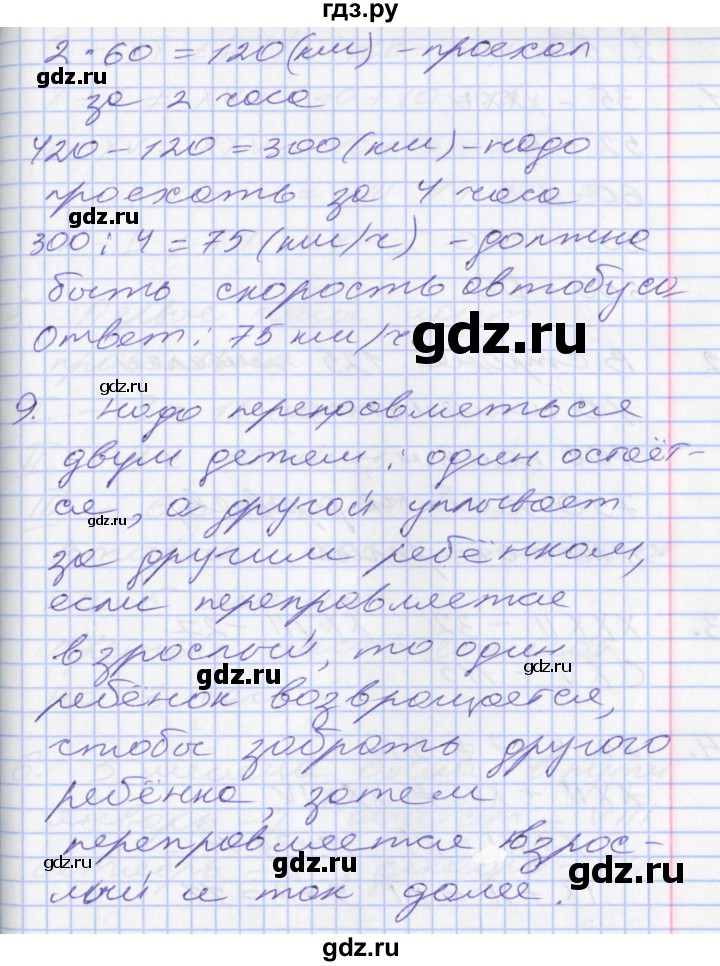 гдз.ру
2 · 60 = 120 (км) - проехал
за 2 часа
420 - 120 = 300 (км) - надо
проехать за 4 часа
gdz.ru
300 : 4 = 75 (км/ч) - должна
быть скорость автобуса.
Ответ: 75 км/ч
gdz.ru
gdz.ru
9. Надо переправляться
двум детям: один остаёт-
ся, а другой уплывает
gdz.ru
за другим ребёнком,
если переправляется
взрослый, то один
gdz.ru
gdz.ru
ребёнок возвращается,
чтобы забрать другого
ребёнка, затем
переправляется взрос-
gdz.ru
gdz.ru
gdz.ru
лый и так далее.
gdz.ru